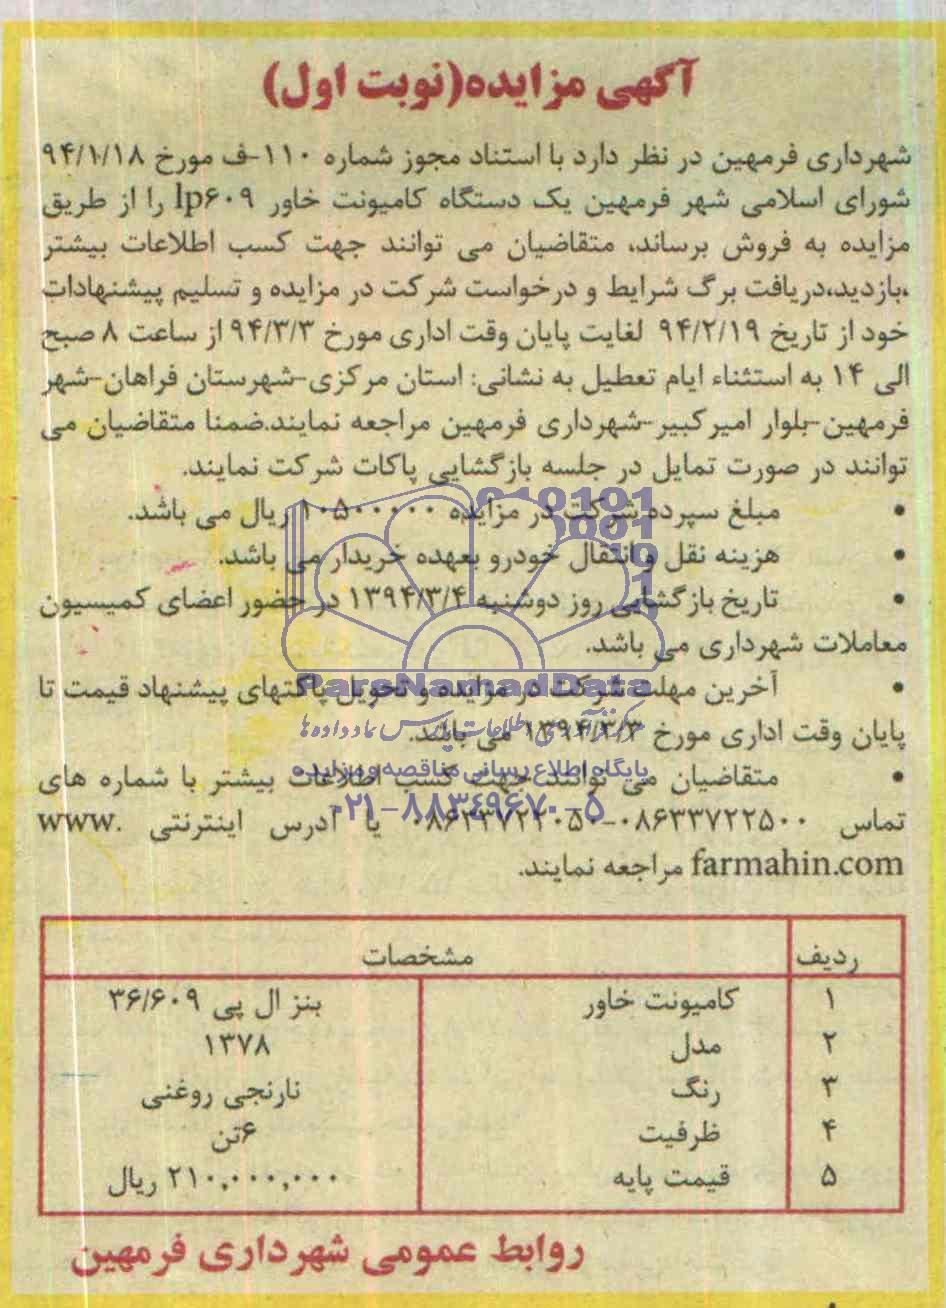 آگهی مزایده(نوبت اول)
شهرداری فرمهین در نظر دارد با استناد مجوز شماره ۱۱۰-ف مورخ ۹۴/۱/۱۸
شورای اسلامی شهر فرمهین یک دستگاه کامیونت خاور lp۶۰۹ را از طریق
مزایده به فروش برساند، متقاضیان می توانند جهت کسب اطلاعات بیشتر
،بازدید،دریافت برگ شرایط و درخواست شرکت در مزایده و تسلیم پیشنهادات
خود از تاریخ ۹۴/۲/۱۹ لغایت پایان وقت اداری مورخ ۹۴/۳/۳ از ساعت ۸ صبح
الی ۱۴ به استثناء ایام تعطیل به نشانی: استان مرکزی-شهرستان فراهان-شهر
فرمهین-بلوار امیرکبیر-شهرداری فرمهین مراجعه نمایند.ضمنا متقاضیان می
توانند در صورت تمایل در جلسه بازگشایی پاکات شرکت نمایند.
• مبلغ سپرده شرکت در مزایده ۱۰۵۰۰۰۰۰ ریال می باشد.
• هزینه نقل و انتقال خودرو بعهده خریدار می باشد.
• تاریخ بازگشایی روز دوشنبه ۱۳۹۴/۳/۴ در حضور اعضای کمیسیون
معاملات شهرداری می باشد.
ParsNamadData
• آخرین مهلت شرکت در مزایده و تحویل پاکتهای پیشنهاد قیمت تا
مرکز فرآوری اطلاعات پارس نماد داده ها
پایان وقت اداری مورخ ۱۳۹۴/۳/۳ می باشد.
پایگاه اطلاع رسانی مناقصه و مزایده
• متقاضیان می توانند جهت کسب اطلاعات بیشتر با شماره های
۰۲۱-۸۸۳۴۹۶۷۰-۵
تماس ۰۸۶۳۳۷۲۲۵۰۰-۰۸۶۳۳۷۲۲۰۵۰ یا آدرس اینترنتی www.
farmahin.com مراجعه نمایند.
ردیف مشخصات
۱ کامیونت خاور بنز ال پی ۳۶/۶۰۹
۲ مدل ۱۳۷۸
۳ رنگ نارنجی روغنی
۴ ظرفیت ۶تن
۵ قیمت پایه ۲۱۰,۰۰۰,۰۰۰ ریال
روابط عمومی شهرداری فرمهین